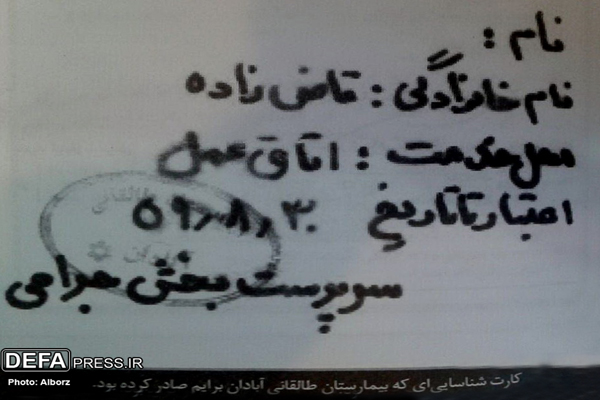 نام :
نام خانوادگی : قاضی زاده
محل خدمت : اتاق عمل
اعتبار تا تاریخ ۵۹٫۸٫۳۰
سرپرست بخش جراحی
طالقانی
آبادان
DEFA PRESS.IR
Photo: Alborz
کارت شناسایی‌ای که بیمارستان طالقانی آبادان برایم صادر کرده بود.